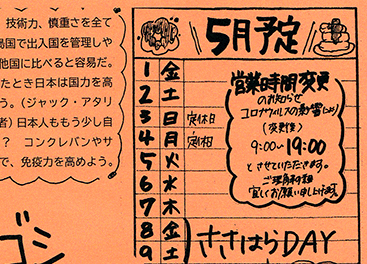 技術力、慎重さを全て
局国で出入国を管理しや
他国に比べると容易だ。
たとき日本は国力を高
う。（ジャック・アタリ
者）日本人ももう少し自
？　コンクレバンやサ
で、免疫力を高めよう。
5月予定
1 金
2 土
3 日 定休日
4 月 定休日
5 火
6 水
7 木
8 金
9 土
ささはらDAY
営業時間変更
のお知らせ
コロナウィルスの影響により
（変更後）
9:00〜19:00
とさせていただきます。
ご理解の程
宜しくお願い申し上げます。